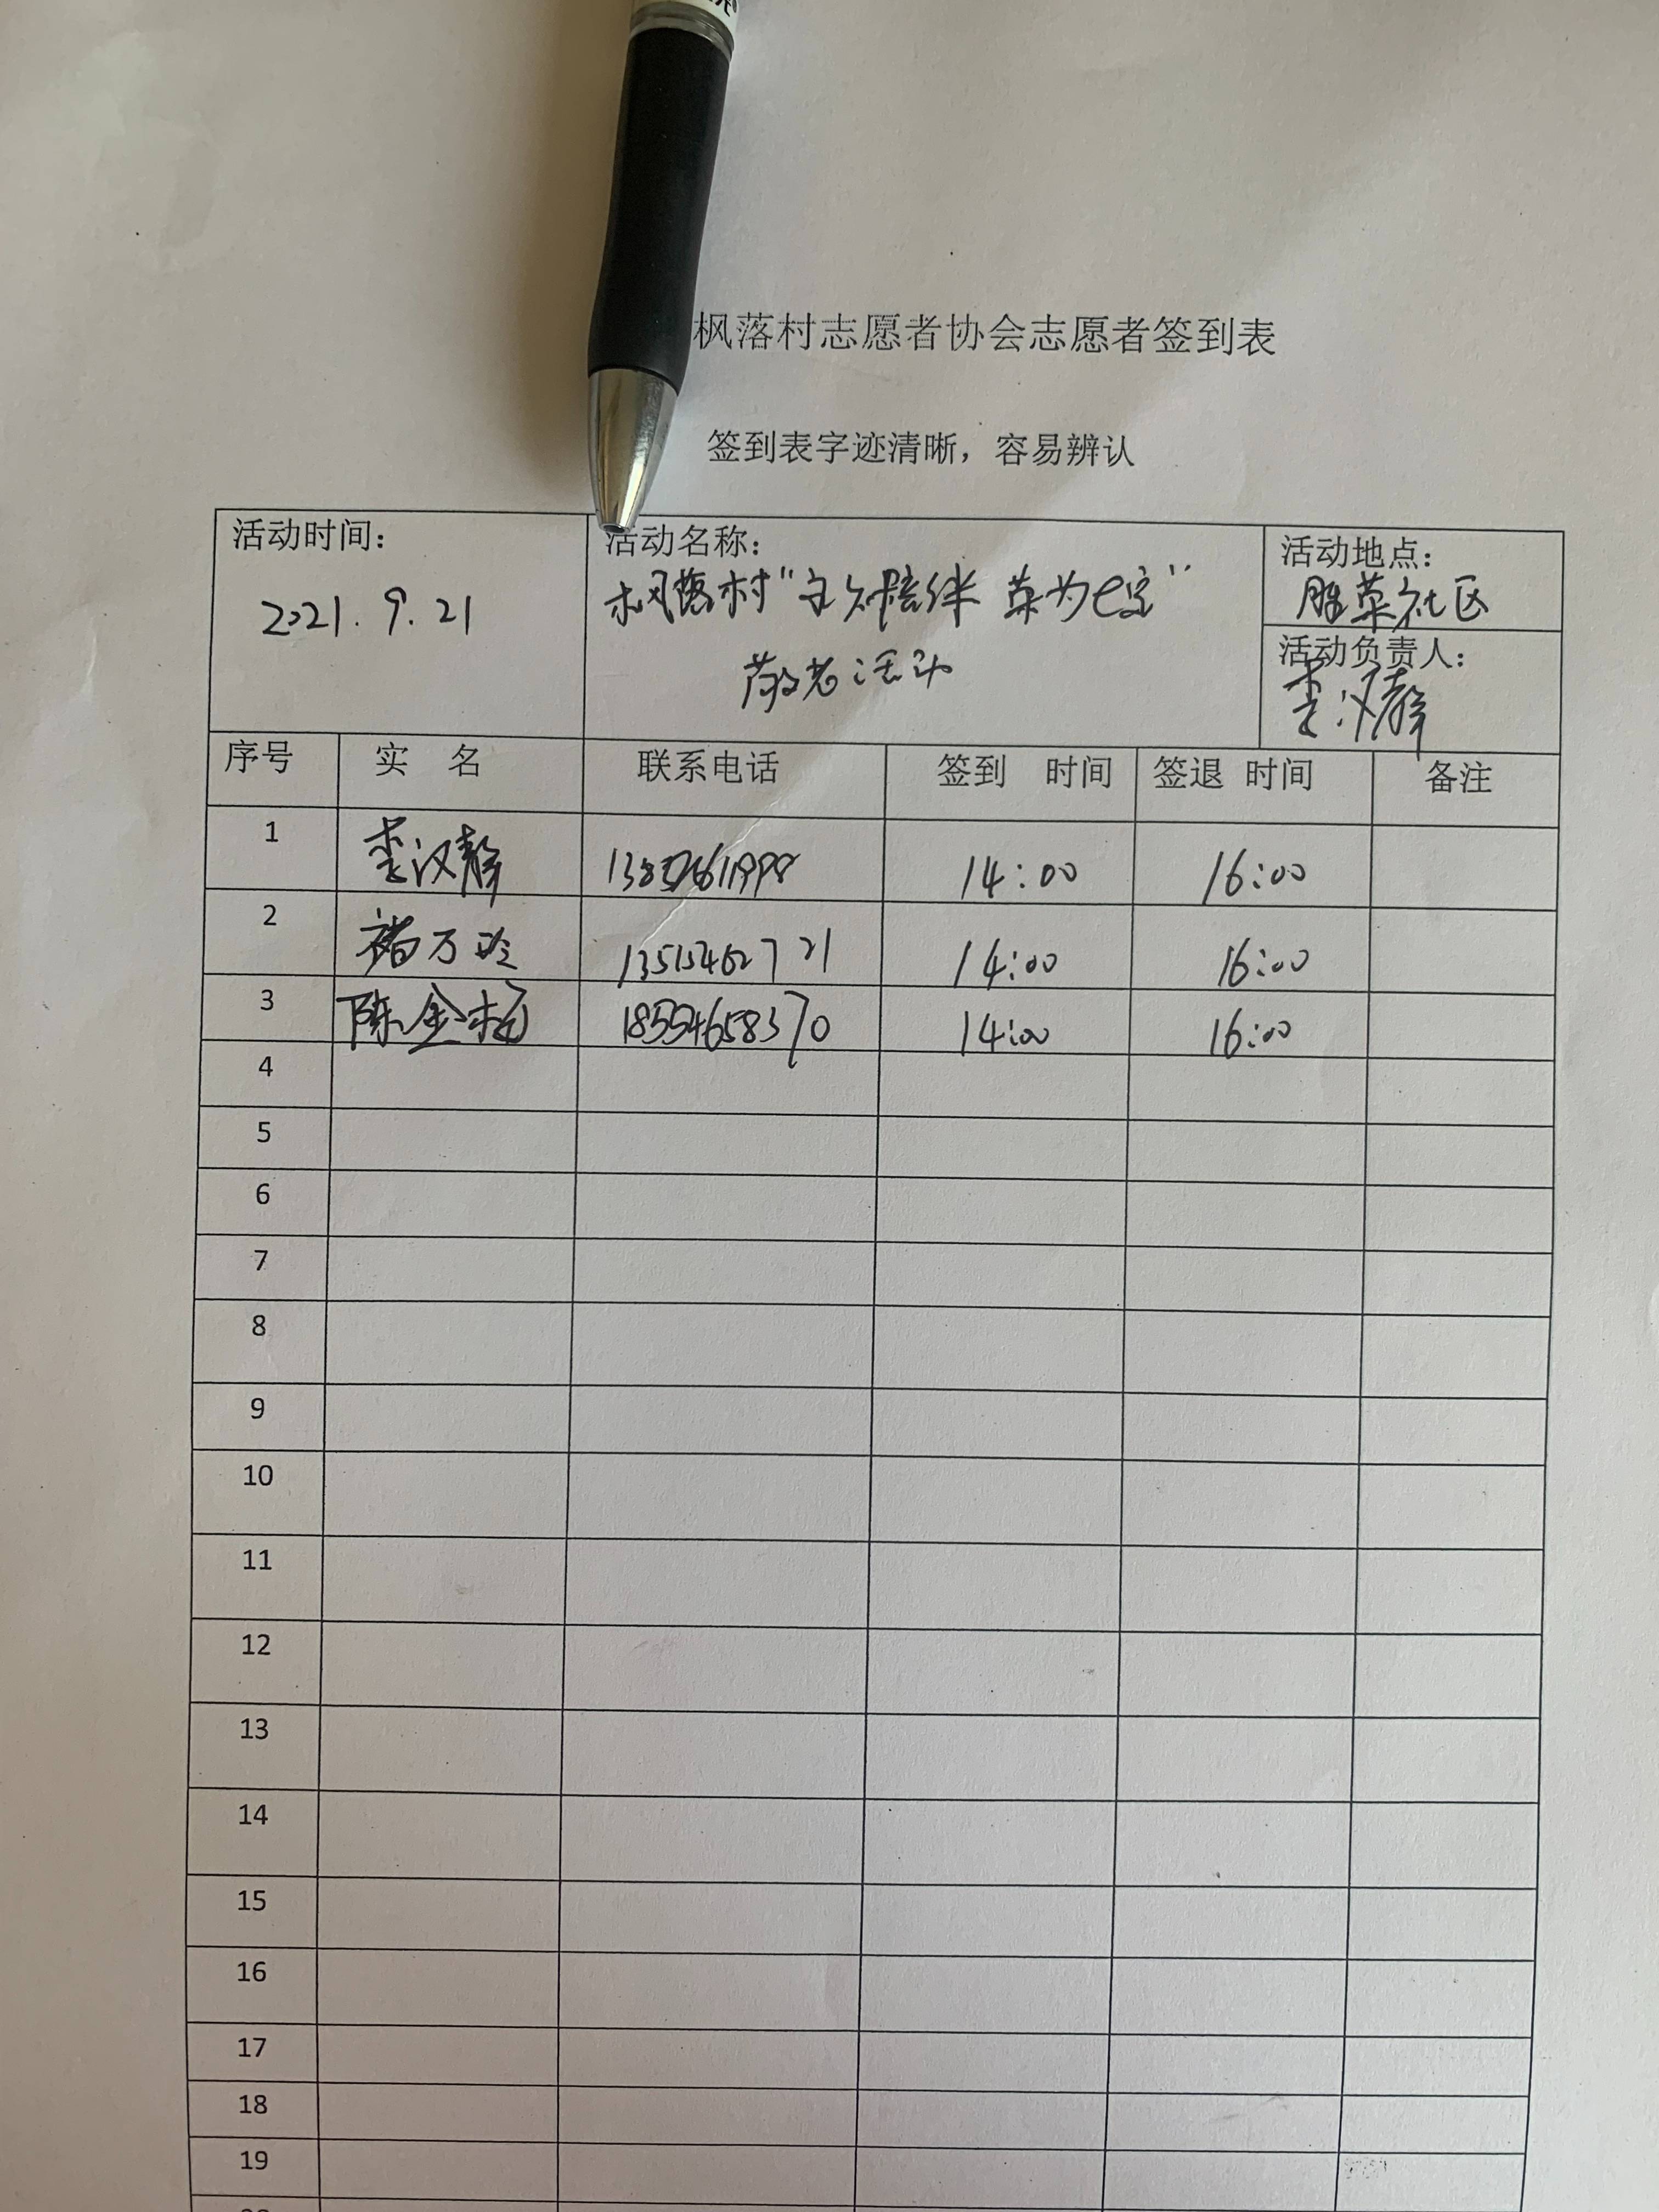 枫落村志愿者协会志愿者签到表
签到表字迹清晰，容易辨认
活动时间：
2021.9.21
活动名称：
枫落村"文久陪伴 菜为七宝"
敬老活动
活动地点：
胜菜社区
活动负责人：
李汉静
序号 实 名 联系电话 签到 时间 签退 时间 备注
1 李汉静 14:00 16:00
2 褚万玲 13515462721 14:00 16:00
3 陈金梅 18554658370 14:00 16:00
4
5
6
7
8
9
10
11
12
13
14
15
16
17
18
19